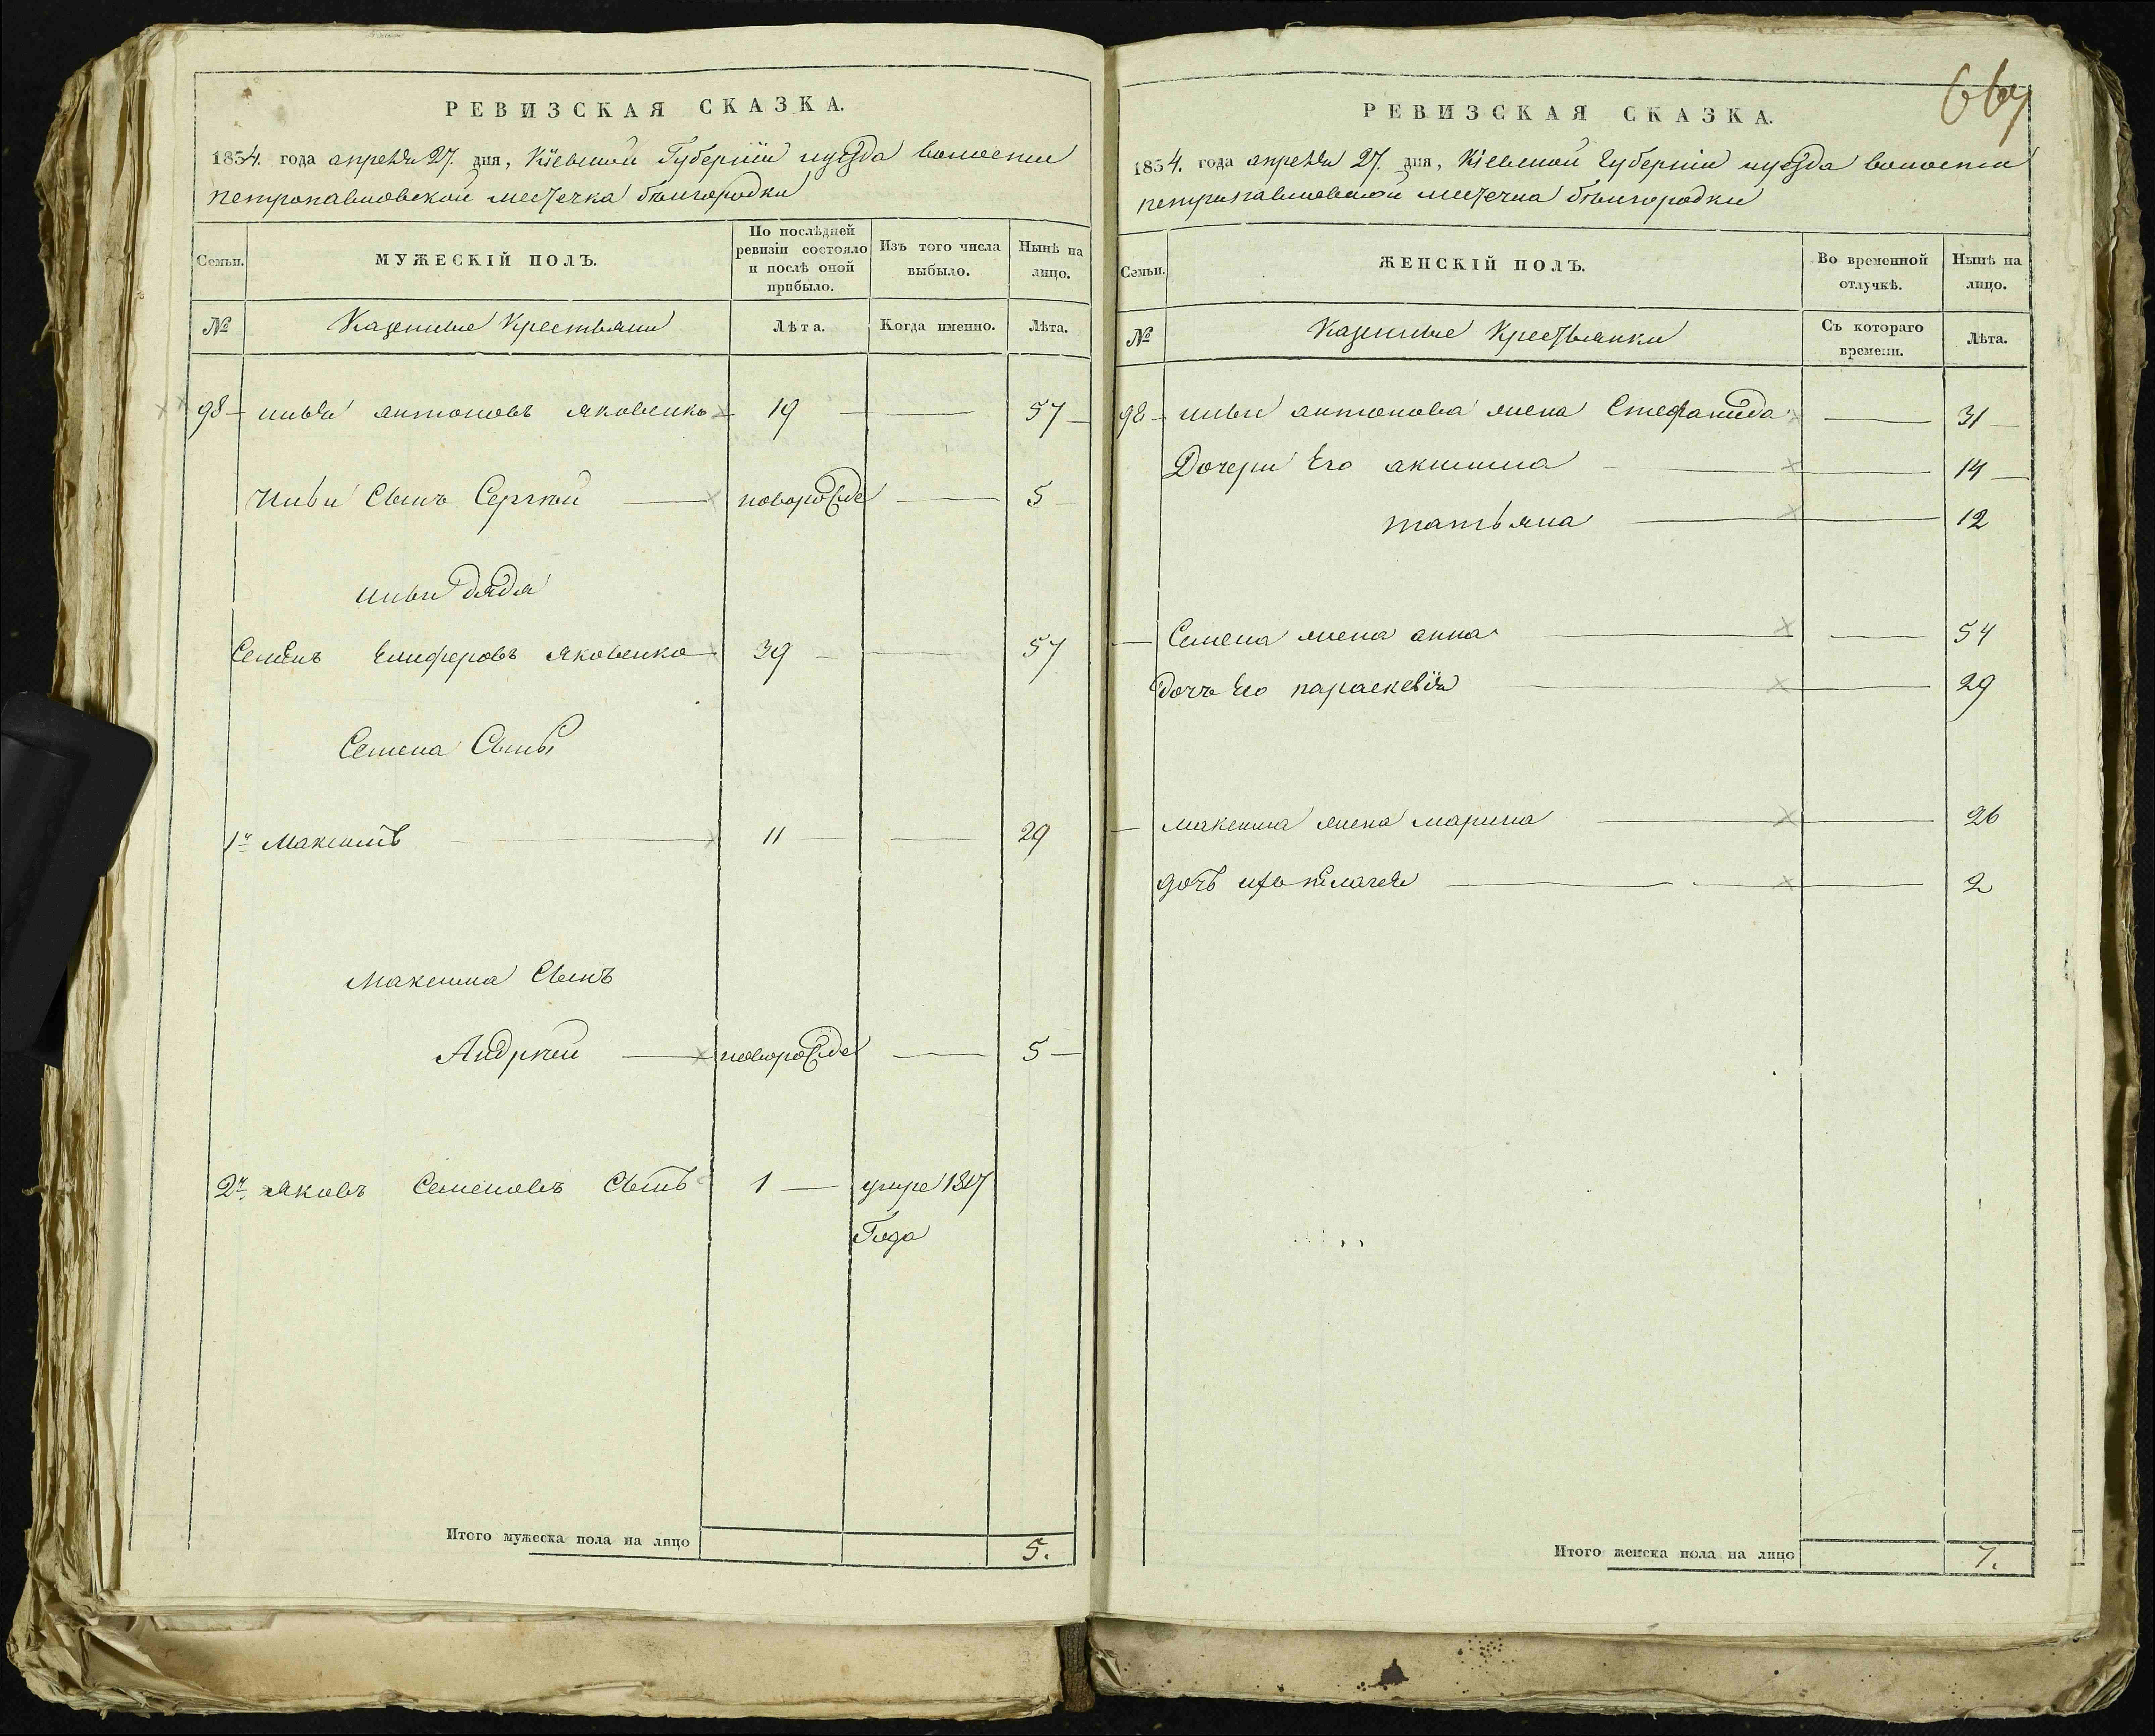 РЕВИЗСКАЯ СКАЗКА.
1854. года апреля 27. дня, Кіевской Губерніи иуезда волости
петропавловской местечка бѣлгородки
Семьи.
МУЖЕСКІЙ ПОЛЪ.
По послѣдней ревизіи состояло и послѣ оной прибыло.
Изъ того числа выбыло.
Нынѣ на лицо.
№
Казенные Крестьяни
Лѣта.
Когда именно.
Лѣта.
98 илья антоновъ яковенко 19 57
Ильи Сынъ Сергѣй новорожде 5
ильи дядя
Семенъ Елиферовъ яковенко 39 57
Семена Сыны
1й Максимъ 11 29
Максима Сынъ
Андрѣй новорожде 5
2й яковъ Семеновъ Сынъ 1 умре 1847
Года
Итого мужеска пола на лицо 5.
669
РЕВИЗСКАЯ СКАЗКА.
1854. года апреля 27. дня, Кіевской губерніи иуезда волости
петропавловской местечка бѣлгородки
Семьи.
ЖЕНСКІЙ ПОЛЪ.
Во временной отлучкѣ.
Нынѣ на лицо.
№
Казенные Крестьянки
Съ котораго времени.
Лѣта.
98 ильи антонова жена Стефанида 31
Дочери Его акилина 14
татьяна 12
Семена жена анна 54
Дочь Его параскевія 29
максима жена марина 26
дочъ ихъ пелагея 2
Итого женска пола на лицо 7.